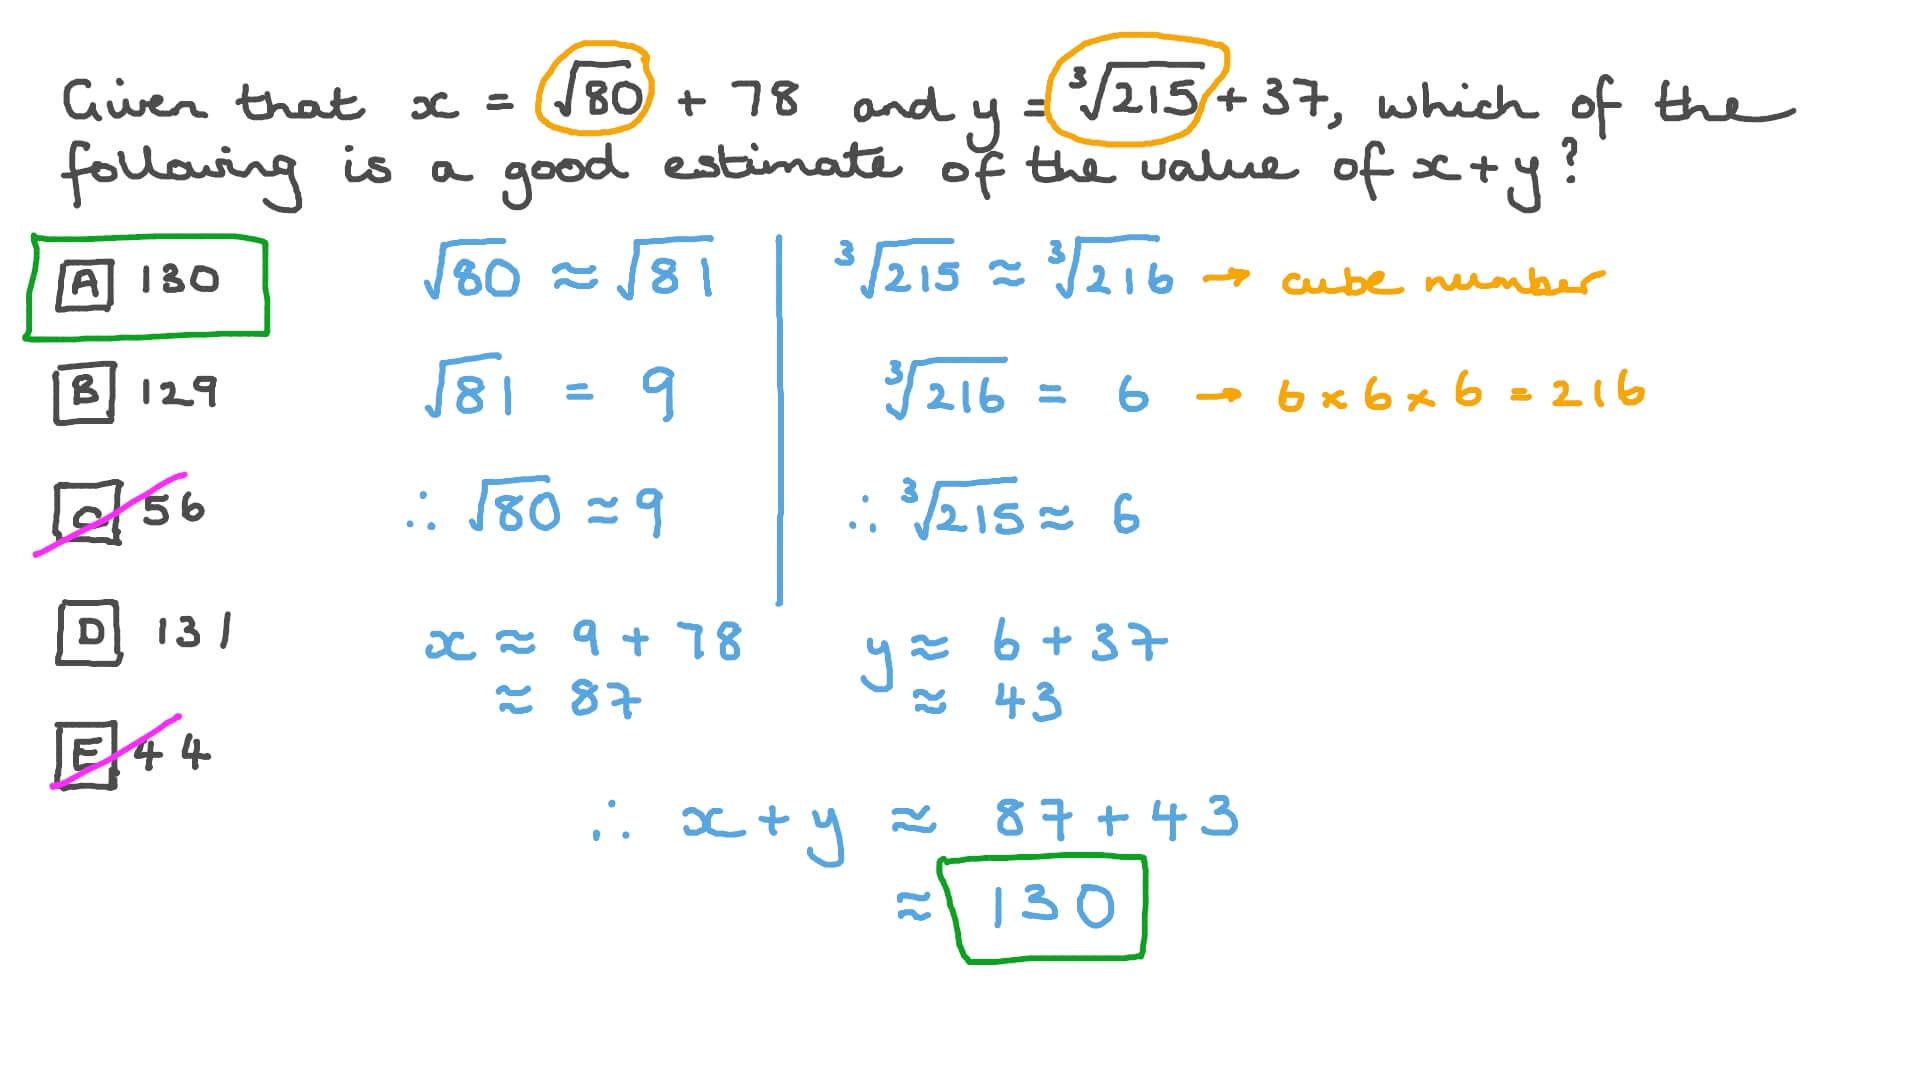 Given that x = √80 + 78 and y = ∛215 + 37, which of the
following is a good estimate of the value of x + y?
A 130
B 129
C 56
D 131
E 44
√80 ≈ √81
√81 = 9
∴ √80 ≈ 9
∛215 ≈ ∛216 → cube number
∛216 = 6 → 6 × 6 × 6 = 216
∴ ∛215 ≈ 6
x ≈ 9 + 78
≈ 87
y ≈ 6 + 37
≈ 43
∴ x + y ≈ 87 + 43
≈ 130